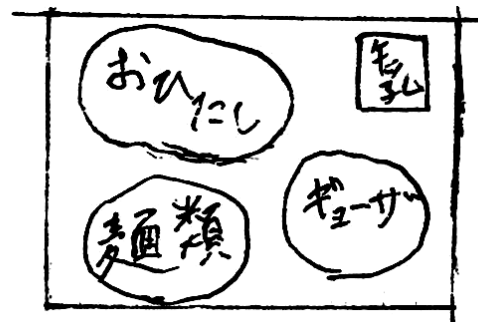 おひたし
牛乳
麺類
ギョーザ